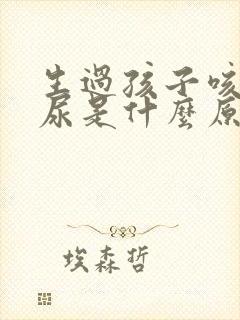 生過孩子咳
尿是什麼原
埃森哲